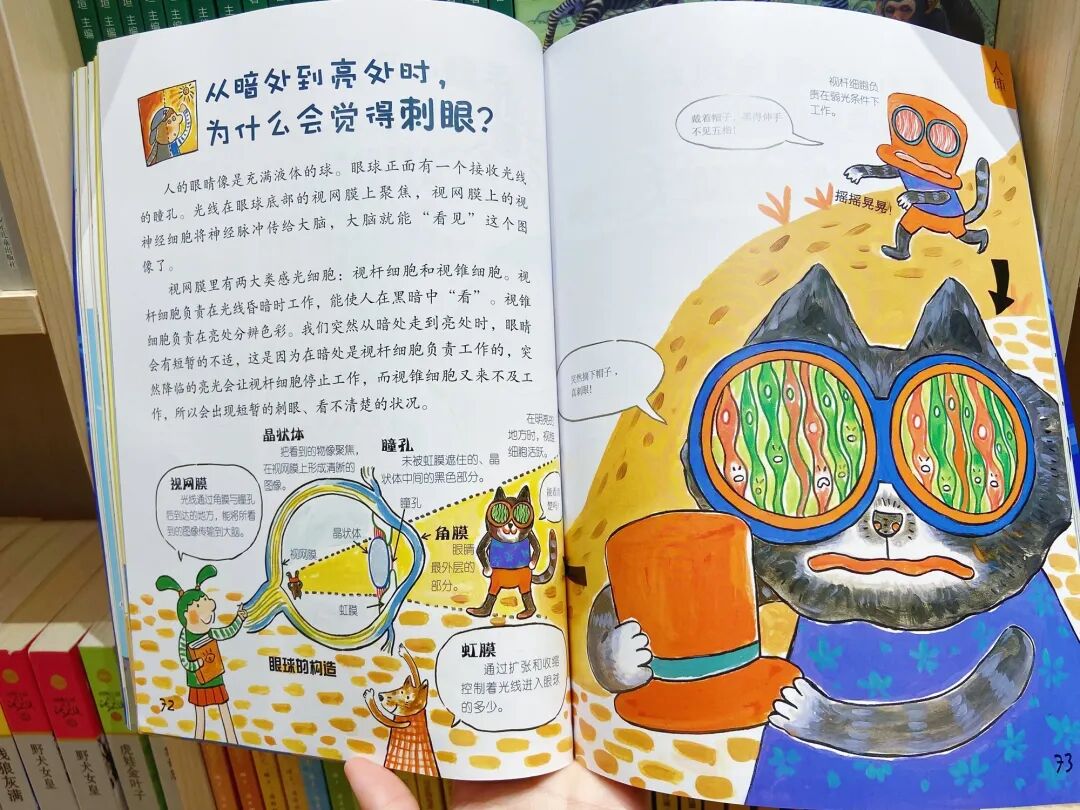 主编
主编
主编
主编
从暗处到亮处时，
为什么会觉得刺眼？
人的眼睛像是充满液体的球。眼球正面有一个接收光线
的瞳孔。光线在眼球底部的视网膜上聚焦，视网膜上的视
神经细胞将神经脉冲传给大脑，大脑就能“看见”这个图
像了。
视网膜里有两大类感光细胞：视杆细胞和视锥细胞。视
杆细胞负责在光线昏暗时工作，能使人在黑暗中“看”。视锥
细胞负责在亮处分辨色彩。我们突然从暗处走到亮处时，眼睛
会有短暂的不适，这是因为在暗处是视杆细胞负责工作的，突
然降临的亮光会让视杆细胞停止工作，而视锥细胞又来不及工
作，所以会出现短暂的刺眼、看不清楚的状况。
晶状体
把看到的物像聚焦，
在视网膜上形成清晰的
图像。
瞳孔
未被虹膜遮住的、晶
状体中间的黑色部分。
在明亮的
地方时，视锥
细胞活跃。
视网膜
光线通过角膜与瞳孔
后到达的地方，能将所看
到的图像传输到大脑。
瞳孔
晶状体
视网膜
虹膜
角膜
眼睛
最外层的
部分。
眼球的构造
虹膜
通过扩张和收缩
控制着光线进入眼球
的多少。
72
人体
视杆细胞负
责在弱光条件下
工作。
戴着帽子，黑得伸手
不见五指！
摇摇晃晃！
突然摘下帽子，
真刺眼！
73
野犬女皇
野犬女皇
虎娃金叶子
狼灰满